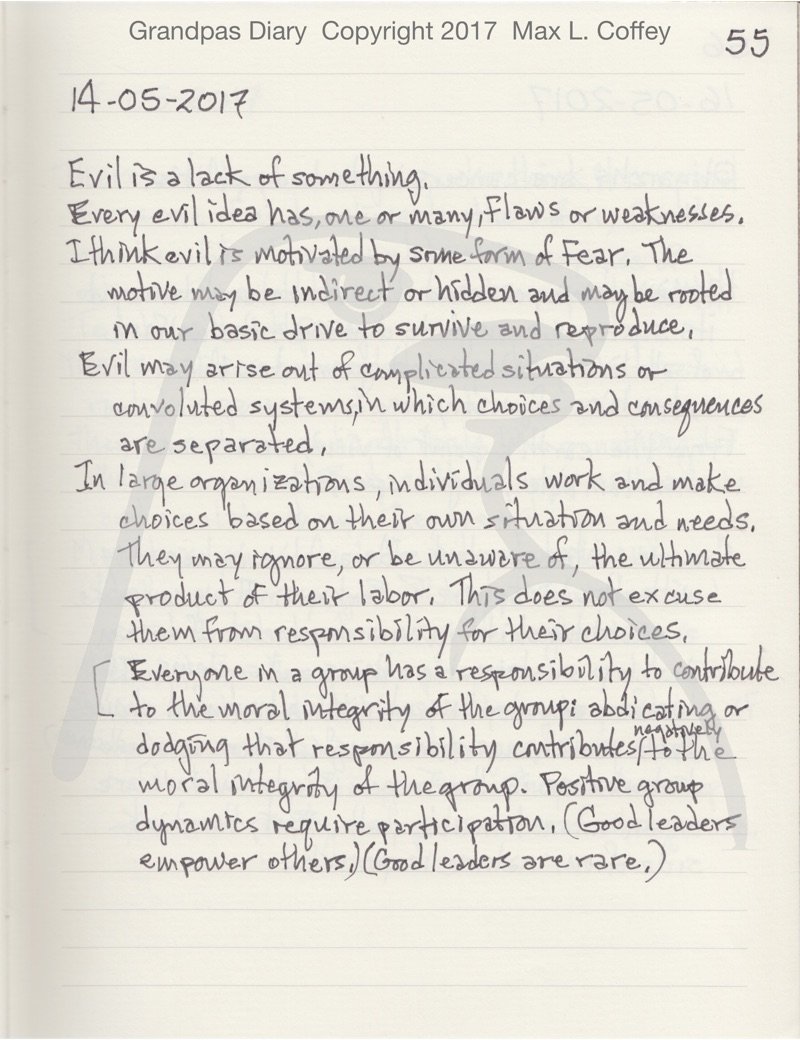 Grandpas Diary Copyright 2017 Max L. Coffey
55
14-05-2017
Evil is a lack of something.
Every evil idea has, one or many, flaws or weaknesses.
I think evil is motivated by some form of Fear. The
motive may be indirect or hidden and may be rooted
in our basic drive to survive and reproduce.
Evil may arise out of complicated situations or
convoluted systems, in which choices and consequences
are separated.
In large organizations, individuals work and make
choices based on their own situation and needs.
They may ignore, or be unaware of, the ultimate
product of their labor. This does not excuse
them from responsibility for their choices.
[ Everyone in a group has a responsibility to contribute
to the moral integrity of the group; abdicating or
negatively
dodging that responsibility contributes/to the
moral integrity of the group. Positive group
dynamics require participation. (Good leaders
empower others.) (Good leaders are rare.)